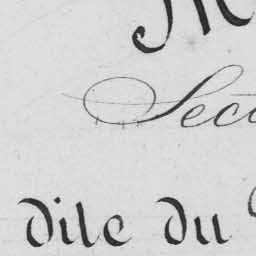 M
Sect
dile du